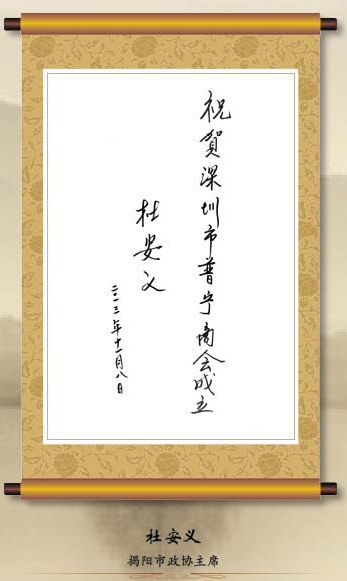 祝贺深圳市普宁商会成立
杜安义
二〇一三年十一月八日
杜安义
揭阳市政协主席